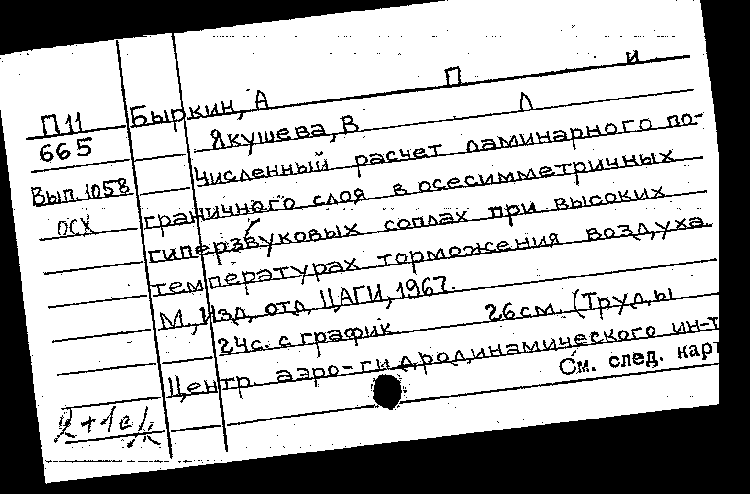 П11 Быркин, А П и
665 Якушева, В Л
Численный расчет ламинарного по-
Вып. 1058 граничного слоя в осесимметричных
ОСХ гиперзвуковых соплах при высоких
температурах торможения воздуха
М., Изд. отд. ЦАГИ, 1967.
24с. с график 26см. (Труды
Центр. аэро-гидродинамического ин-т
См. след. кар